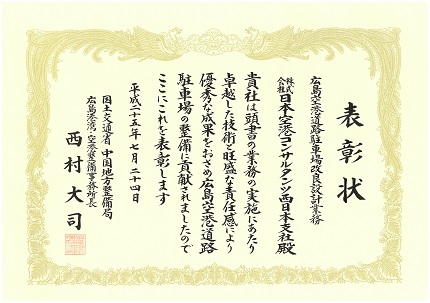 表彰状
広島空港道路駐車場改良設計業務
株式会社日本空港コンサルタンツ西日本支社殿
貴社は頭書の業務の実施にあたり
卓越した技術と旺盛な責任感により
優秀な成果をおさめ広島空港道路
駐車場の整備に貢献されましたので
ここにこれを表彰します
平成二十五年七月二十四日
国土交通省 中国地方整備局
広島港湾・空港整備事務所長
西村大司